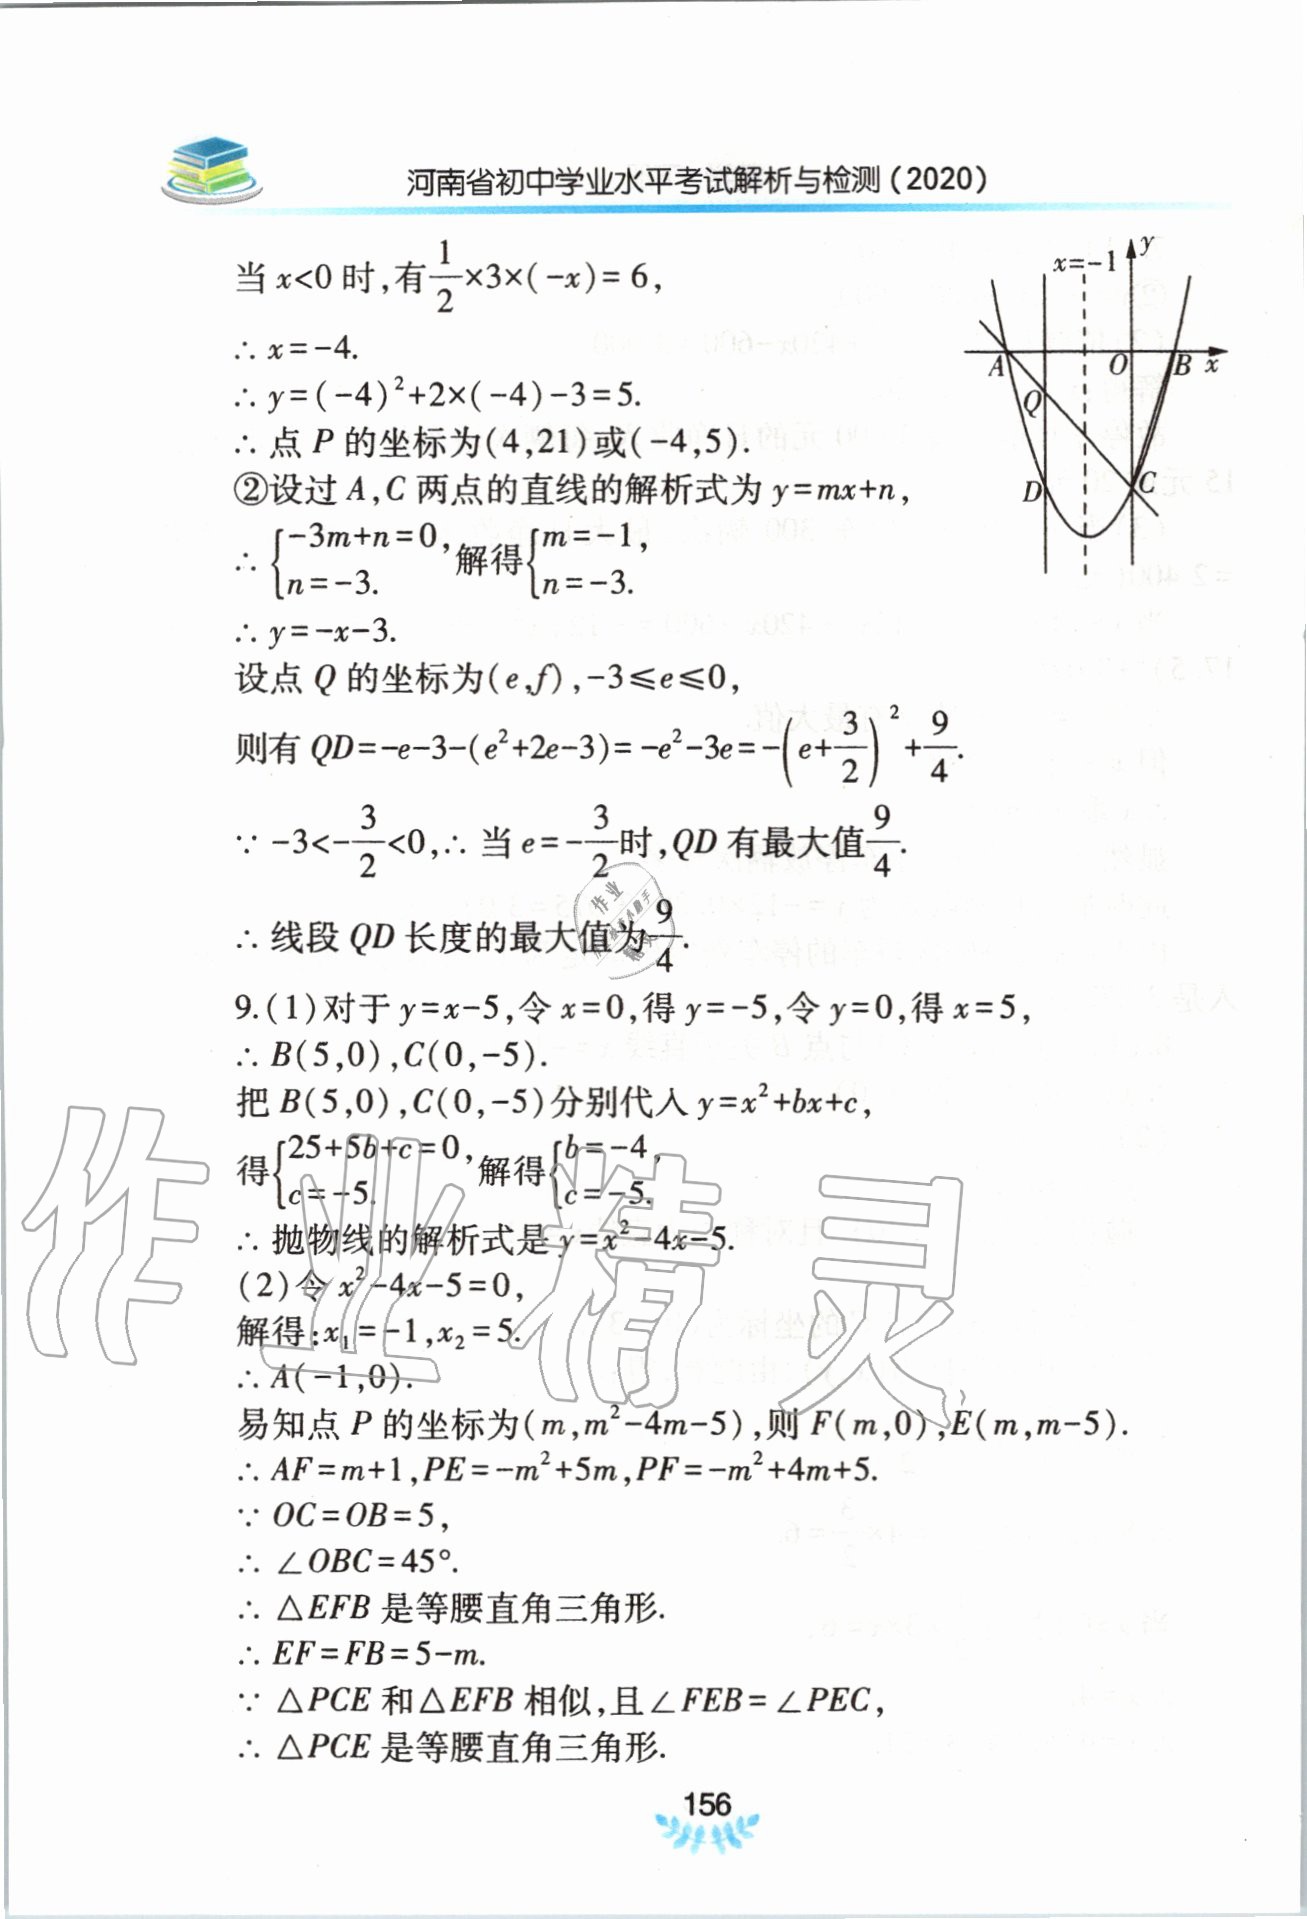 河南省初中学业水平考试解析与检测(2020)
当 x<0 时,有1/2×3×(-x)=6,
∴ x=-4.
∴ y=(-4)²+2×(-4)-3=5.
∴ 点 P 的坐标为(4,21)或(-4,5).
②设过 A,C 两点的直线的解析式为 y=mx+n,
∴ {-3m+n=0, n=-3. 解得{m=-1, n=-3.
∴ y=-x-3.
设点 Q 的坐标为(e,f),-3≤e≤0,
则有 QD=-e-3-(e²+2e-3)=-e²-3e=-(e+3/2)²+9/4.
∵ -3<-3/2<0,∴ 当 e=-3/2时,QD 有最大值9/4.
∴ 线段 QD 长度的最大值为9/4.
x=-1
y
A
O
B
x
Q
D
C
9.(1)对于 y=x-5,令 x=0,得 y=-5,令 y=0,得 x=5,
∴ B(5,0),C(0,-5).
把 B(5,0),C(0,-5)分别代入 y=x²+bx+c,
得{25+5b+c=0, c=-5. 解得{b=-4, c=-5.
∴ 抛物线的解析式是 y=x²-4x-5.
(2)令 x²-4x-5=0,
解得:x₁=-1,x₂=5.
∴ A(-1,0).
易知点 P 的坐标为(m,m²-4m-5),则 F(m,0),E(m,m-5).
∴ AF=m+1,PE=-m²+5m,PF=-m²+4m+5.
∵ OC=OB=5,
∴ ∠OBC=45°.
∴ △EFB 是等腰直角三角形.
∴ EF=FB=5-m.
∵ △PCE 和△EFB 相似,且∠FEB=∠PEC,
∴ △PCE 是等腰直角三角形.
作业精灵
156